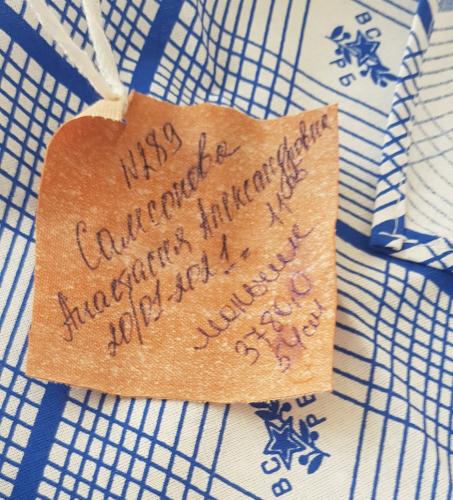 N289
Самсонова
Анастасия Александровна
20/01-2021г.
мальчик
3780,0
54см
ВС
РБ
ВС
РБ